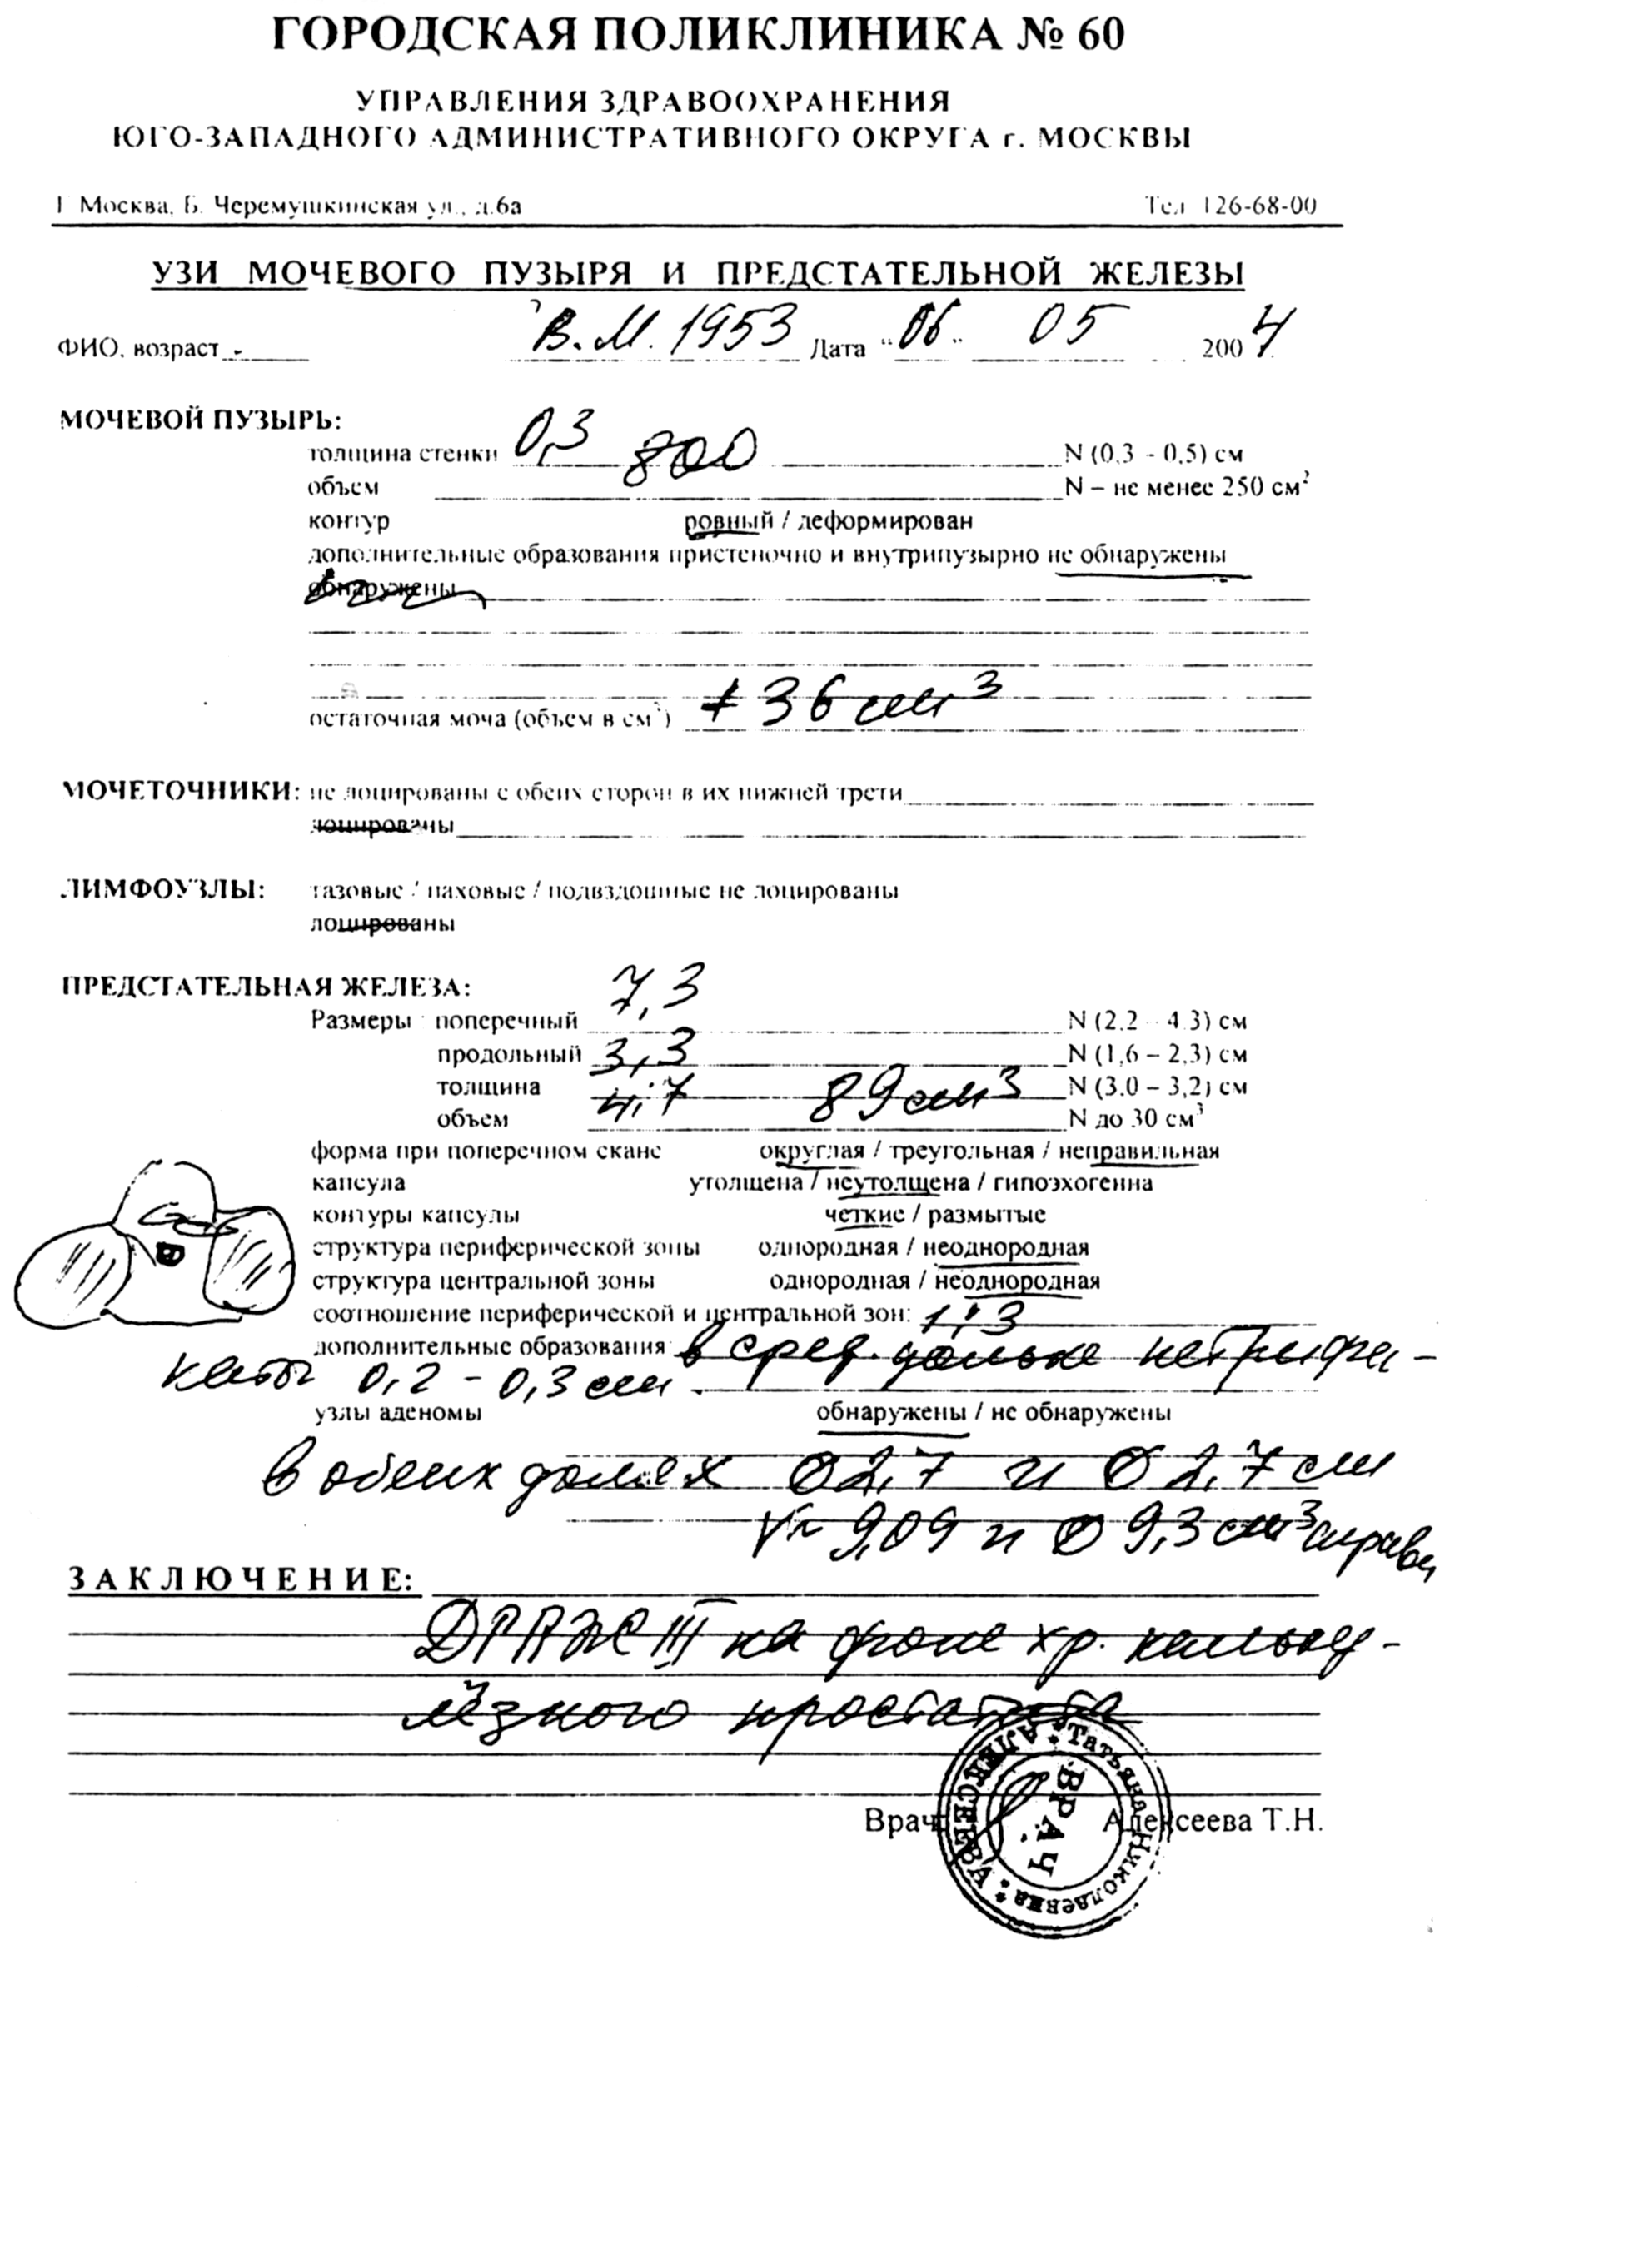 ГОРОДСКАЯ ПОЛИКЛИНИКА № 60
УПРАВЛЕНИЯ ЗДРАВООХРАНЕНИЯ
ЮГО-ЗАПАДНОГО АДМИНИСТРАТИВНОГО ОКРУГА г. МОСКВЫ
Г. Москва, Б. Черемушкинская ул., д.6а Тел. 126-68-00
УЗИ МОЧЕВОГО ПУЗЫРЯ И ПРЕДСТАТЕЛЬНОЙ ЖЕЛЕЗЫ
ФИО, возраст В.М. 1953 Дата "06" 05 2004
МОЧЕВОЙ ПУЗЫРЬ:
толщина стенки 0,3 N (0,3 - 0,5) см
объем 800 N – не менее 250 см²
контур ровный / деформирован
дополнительные образования пристеночно и внутрипузырно не обнаружены
обнаружены
остаточная моча (объем в см³) + 36 см³
МОЧЕТОЧНИКИ: не лоцированы с обеих сторон в их нижней трети
лоцированы
ЛИМФОУЗЛЫ: тазовые / паховые / подвздошные не лоцированы
лоцированы
ПРЕДСТАТЕЛЬНАЯ ЖЕЛЕЗА:
Размеры: поперечный 7,3 N (2,2 - 4,3) см
продольный 3,3 N (1,6 – 2,3) см
толщина 4,7 N (3,0 – 3,2) см
объем 89 см³ N до 30 см³
форма при поперечном скане округлая / треугольная / неправильная
капсула утолщена / неутолщена / гипоэхогенна
контуры капсулы четкие / размытые
структура периферической зоны однородная / неоднородная
структура центральной зоны однородная / неоднородная
соотношение периферической и центральной зон: 1:3
дополнительные образования в сред. дольке петрифи-
каты 0,2 - 0,3 см.
узлы аденомы обнаружены / не обнаружены
в обеих долях ∅ 2,7 и ∅ 2,7 см
V~ 9,09 и 9,3 см³ справа
ЗАКЛЮЧЕНИЕ:
ДГПЖ III на фоне хр. кальку-
лёзного простатита
Врач Алексеева Т.Н.
* Татьяна Николаевна * АЛЕКСЕЕВА
ВРАЧ